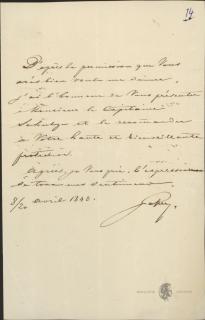 14
D'après la permission que Vous
avez bien voulu me donner,
j'ai l'honneur de Vous présenter
Monsieur le Capitaine
et de le recommander
à Votre haute et bienveillante
protection.
Agréez, je Vous prie, l'expression
de tous mes sentiments
8/20 avril 1840.